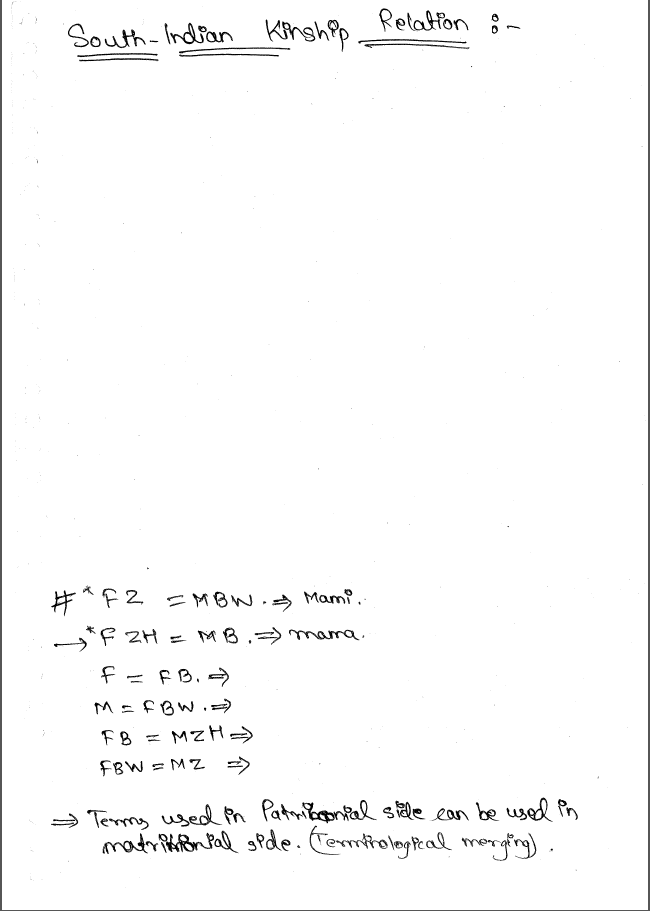 South-Indian Kinship Relation :-
# * FZ = MBW. ⇒ Mami.
→ * FZH = MB. ⇒ mama.
F = FB. ⇒
M = FBW. ⇒
FB = MZH ⇒
FBW = MZ ⇒
⇒ Terms used in side can be used in
side. (Terminological merging).